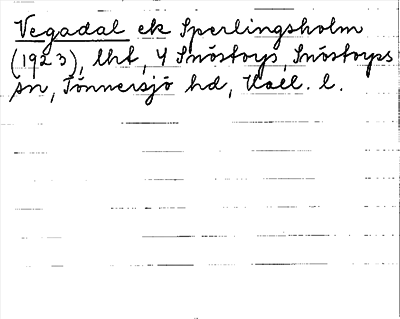 Vegadal ek Sperlingsholm
(1923), lht, Y Snöstorp, Snöstorps
sn, Tönnersjö hd, Hall. l.